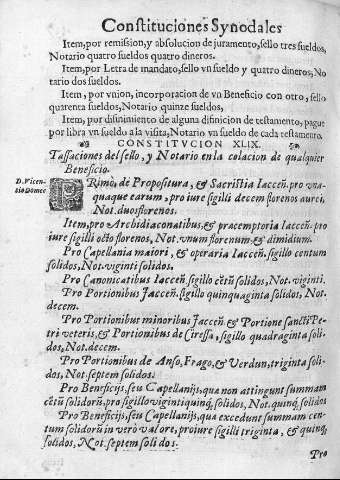 Constituciones Synodales
Item, por remision, y absolucion de juramento, sello tres sueldos,
Notario quatro sueldos quatro dineros.
Item, por Letra de mandato, sello vn sueldo y quatro dineros, No
tario dos sueldos.
Item, por vnion, incorporacion de vn Beneficio con otro, sello
quarenta sueldos, Notario quinze sueldos,
Item, por difinimiento de alguna difinicion de testamento, pague
por libra vn sueldo a la visita, Notario vn sueldo de cada testamento.
CONSTITVCION XLIX.
Tassaciones del sello, y Notario en la colacion de qualquier
Beneficio.
D. Vicen-
tio Domec
PRimò, de Propositura, & Sacristia Iacceñ. pro vna-
quaque earum, pro iure sigilli decem florenos aurei,
Not. duos florenos.
Item, pro Archidiaconatibus, & præceptoria Iacceñ. pro
iure sigilli octo florenos, Not. vnum florenum & dimidium.
Pro Capellania maiori, & operaria Iacceñ. sigillo centum
solidos, Not. viginti solidos.
Pro Canonicatibus Iacceñ. sigillo cētū solidos, Not. viginti.
Pro Portionibus Jacceñ. sigillo quinquaginta solidos, Not.
decem.
Pro Portionibus minoribus Jacceñ. & Portione sancti Pe-
tri veteris, & Portionibus de Ciressa, sigillo quadraginta soli-
dos, Not. decem.
Pro Portionibus de Anso, Frago, & Verdun, triginta soli-
dos, Not. septem solidos.
Pro Beneficijs, seu Capellanijs, qua non attingunt summam
cētū solidorū, pro sigillo viginti quinq; solidos, Not. quinq; solidos
Pro Beneficijs, seu Capellanijs, qua excedunt summam cen-
tum solidorũ in vero valore, pro iure sigilli triginta, & quinq;
solidos, Not. septem solidos.
Pro